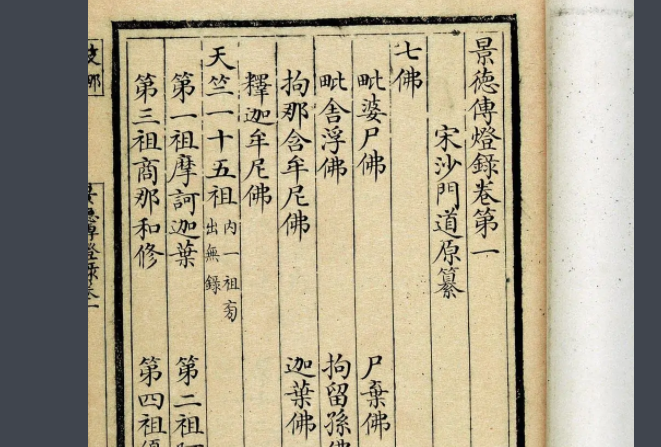 景德傳燈錄卷第一
宋沙門道原纂
七佛
毗婆尸佛 尸棄佛
毗舍浮佛 拘留孫佛
拘那含牟尼佛 迦葉佛
釋迦牟尼佛
天竺一十五祖 內一祖旁出無錄
第一祖摩訶迦葉 第二祖阿
第三祖商那和修 第四祖優